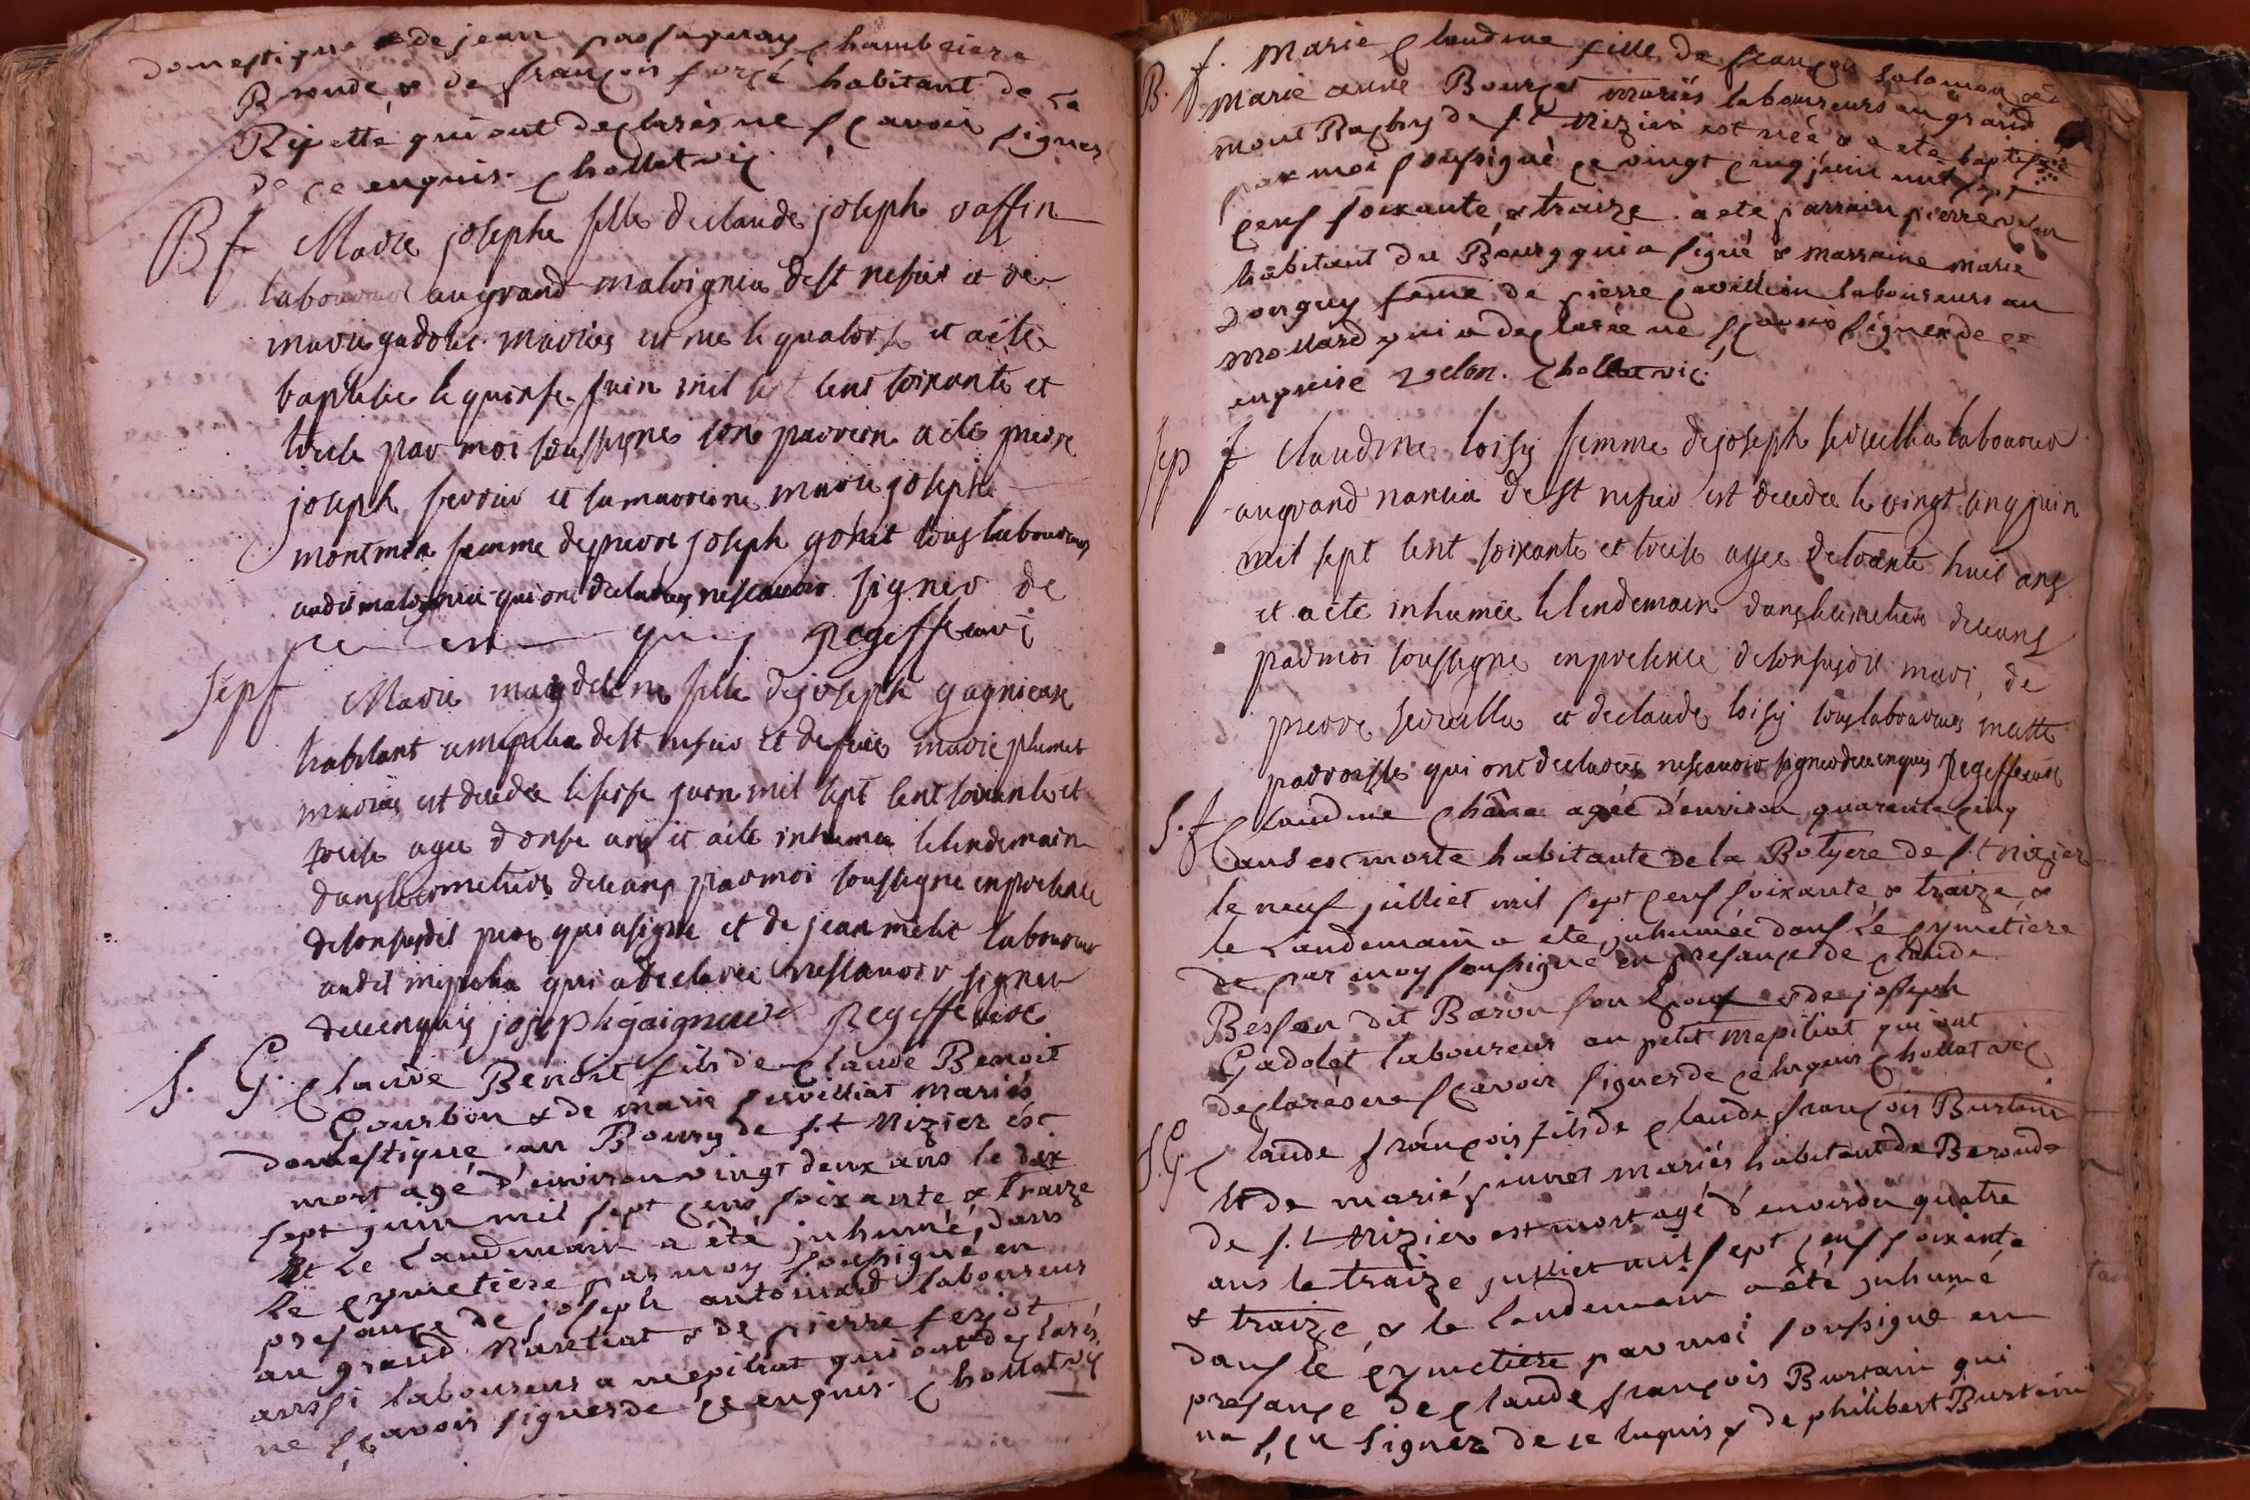 domestique & de jean passaquay chambriere
Bronde, & de françois forçé habitant de la
Ripette qui ont declarés ne sçavoir signer
de ce enquis. chollat vic
B f Marie josephe fille de claude joseph vaffin
laboureur au grand malvigneu de st nesier et de
marie gadolet mariés est née le quatorse et a ete
baptisee le quinse juin mil sept cens soixante et
treise par moi soussigné son parrein a ete pierre
joseph ferrier et sa marreine marie josephe
montmin femme de pierre joseph gohit tous laboureurs
audit malvigneu qui ont declarés nescavoir signer de
ce enquis Regeffe vic
sep f Marie magdelene fille de joseph gagnieure
habitant a mepilia de st nesier et de feüe marie plumet
mariés est decedee le seise juin mil sept cent soixante et
treise agee donse ans et a ete inhumee le lendemain
dans le cimetiere de ceans par moi soussigné en presence
de son susdit pere qui a signé et de jean milit laboureur
audit mepilia qui a declaré nescavoir signer
de ce enquis joseph gaigneure Regeffe vic
S. G. Claude Benoit fils de claude Benoit
Gourbon & de marie servilliat mariés
domestique au Bourg de s.t Nizier est
mort agé d'environ vingt deux ans le dix
sept juin mil sept cens soixante & traize
Et le landemain a été juhumé, dans
le cymetiere par moy soussigné en
presançe de joseph antomard laboureur
au grand Nanliat & de pierre ferjot
aussi laboureur a mepilliat qui ont declarés
ne sçavoir signer de çe enquis. chollat vic
B. f. Marie Claudine fille de françois salomon &
Marie anne Bourget mariés laboureurs au grand
mont Rachy de s.t Nizier est née & a ete baptisée
par moi soussigné ce vingt cinq juin mil sept
cens soixante, & traize. a ete parrain pierre velon
habitant du Bourg qui a signé & marraine marie
donguy feme de pierre pavillion laboureurs au
mollard qui a declarée ne sçavoir signer de ce
enquise velon. chollat vic
sep f Claudine loisy femme de joseph servillia laboureur
au grand nanlia de st nesier est decedee le vingt cinq juin
mil sept cent soixante et treise agee de soixante huit ans
et a ete inhumée le lendemain dans le cimetiere de ceans
par moi soussigné en presence de son susdit mari, de
pierre servillia et de claude loisy tous laboureurs en cette
parroisse qui ont declarés nescavoir signer de ce enquis Regeffe vic
S. f Claudine chêne agée d'environ quarante cinq
ans est morte habitante de la Botyere de s.t nizier
le neuf julliet mil sept cens soixante & traize, &
le Landemain a ete juhumée dans le cymetiere
de par moy soussigné en presançe de claude
Besson dit Baron son Epoux & de joseph
Gadolet laboureur au petit mepiliat qui ont
declarés ne sçavoir signer de ce enquis chollat vic
S. G. Claude françois fils de claude françois Burtain
Et de marie pinret mariés habitant de Beronde
de s.t Nizier est mort agé d'environ quatre
ans le traize julliet mil sept cens soixante
& traize, & le landemain a été juhumé
dans le cymetiere par moi soussigné en
presançe de claude françois Burtain qui
na sçu signer de ce enquis & de philibert Burtain